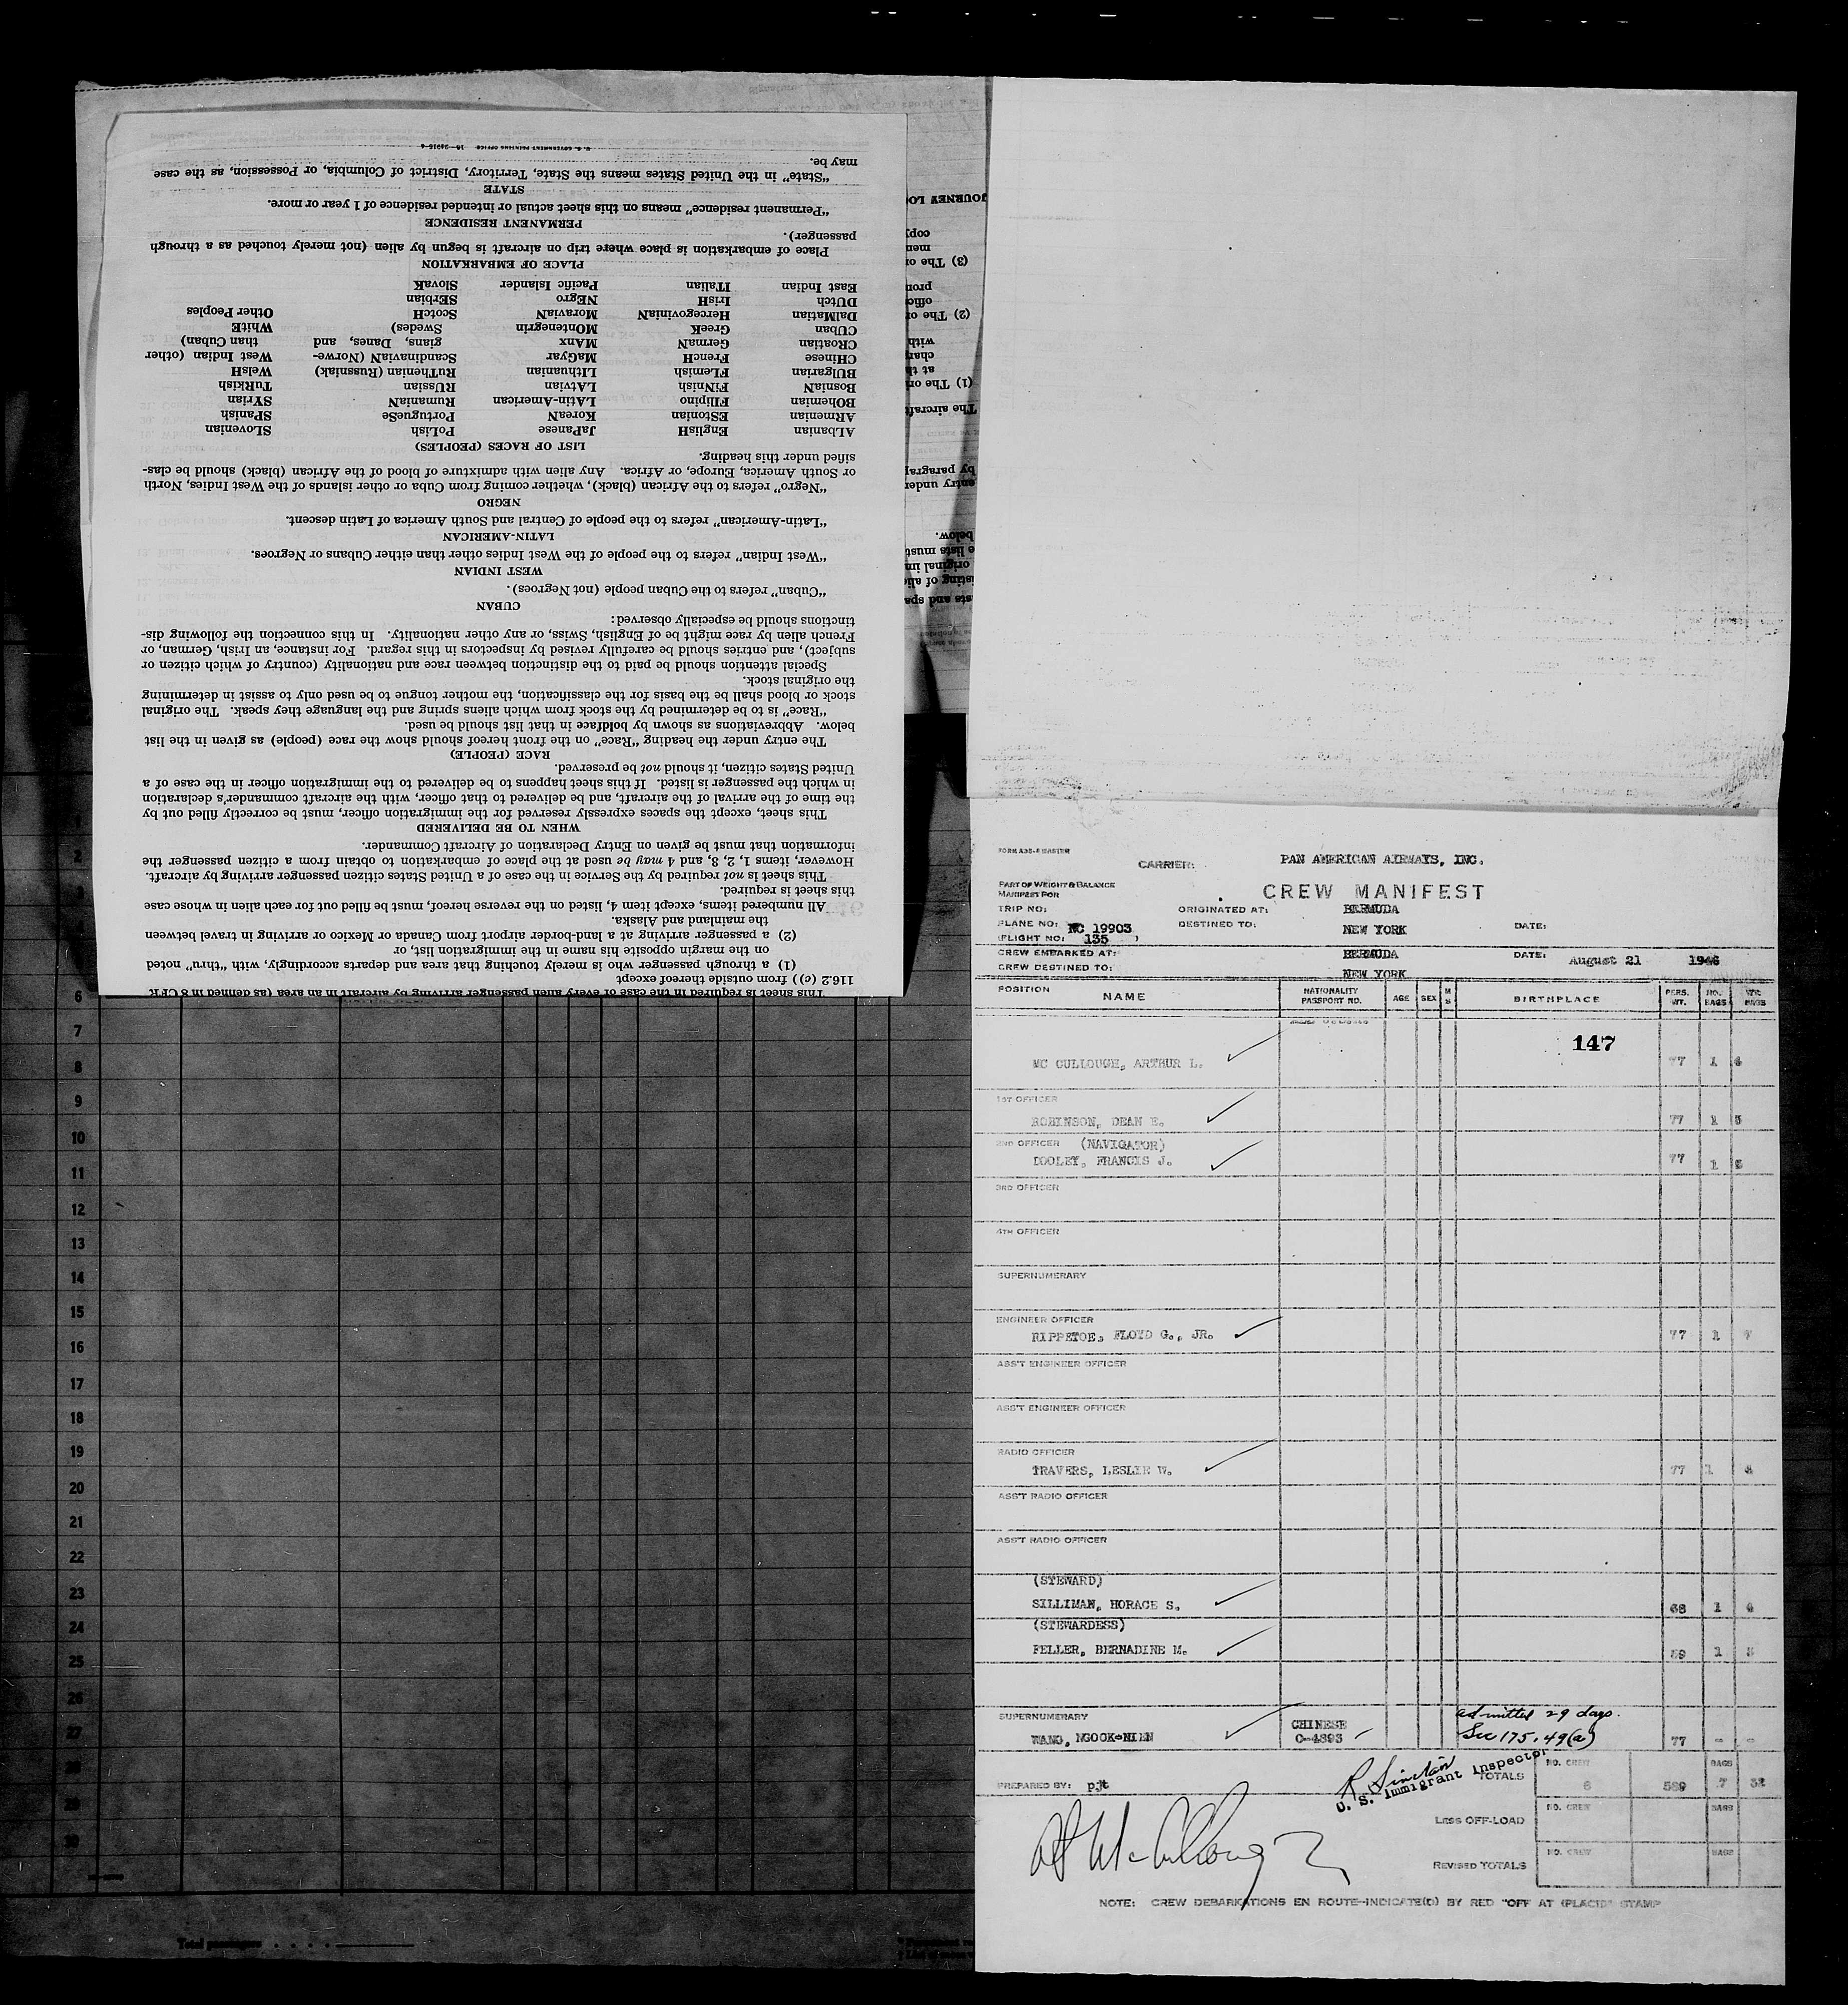 This sheet is required in the case of every alien passenger arriving by aircraft in an area (as defined in 8 CFR
116.2 (c)) from outside thereof except
(1) a through passenger who is merely touching that area and departs accordingly, with "thru" noted
on the margin opposite his name in the immigration list, or
(2) a passenger arriving at a land-border airport from Canada or Mexico or arriving in travel between
the mainland and Alaska.
All numbered items, except item 4, listed on the reverse hereof, must be filled out for each alien in whose case
this sheet is required.
This sheet is not required by the Service in the case of a United States citizen passenger arriving by aircraft.
However, items 1, 2, 3, and 4 may be used at the place of embarkation to obtain from a citizen passenger the
information that must be given on Entry Declaration of Aircraft Commander.
WHEN TO BE DELIVERED
This sheet, except the spaces expressly reserved for the immigration officer, must be correctly filled out by
the time of the arrival of the aircraft, and be delivered to that officer, with the aircraft commander's declaration
in which the passenger is listed. If this sheet happens to be delivered to the immigration officer in the case of a
United States citizen, it should not be preserved.
RACE (PEOPLE)
The entry under the heading "Race" on the front hereof should show the race (people) as given in the list
below. Abbreviations as shown by boldface in that list should be used.
"Race" is to be determined by the stock from which aliens spring and the language they speak. The original
stock or blood shall be the basis for the classification, the mother tongue to be used only to assist in determining
the original stock.
Special attention should be paid to the distinction between race and nationality (country of which citizen or
subject), and entries should be carefully revised by inspectors in this regard. For instance, an Irish, German, or
French alien by race might be of English, Swiss, or any other nationality. In this connection the following dis-
tinctions should be especially observed:
CUBAN
"Cuban" refers to the Cuban people (not Negroes).
WEST INDIAN
"West Indian" refers to the people of the West Indies other than either Cubans or Negroes.
LATIN-AMERICAN
"Latin-American" refers to the people of Central and South America of Latin descent.
NEGRO
"Negro" refers to the African (black), whether coming from Cuba or other islands of the West Indies, North
or South America, Europe, or Africa. Any alien with admixture of blood of the African (black) should be clas-
sified under this heading.
LIST OF RACES (PEOPLES)
ALbanian EnglisH JaPanese PoLish SLovenian
ARmenian EStonian KoreaN PortugueSe SPanish
BOhemian FIlipino LAtin-American RumaniaN SYrian
BosniaN FiNnish LAtvian RUssian TurKish
BUlgarian FLemish LIthuanian RuThenian (Russniak) WelsH
CHinese FrencH MaGyar ScandinaviaN (Norwe- West Indian (other
CRoatian GermaN MAnx gians, Danes, and than Cuban)
CUban GreeK MOntenegrin Swedes) WhitE
DalMatian HercegoviniaN MoraviaN ScotcH Other Peoples
DUtch IrisH NEgro SErbian
East Indian ITalian Pacific Islander SlovaK
PLACE OF EMBARKATION
Place of embarkation is place where trip on aircraft is begun by alien (not merely touched as a through
passenger).
PERMANENT RESIDENCE
"Permanent residence" means on this sheet actual or intended residence of 1 year or more.
STATE
"State" in the United States means the State, Territory, District of Columbia, or Possession, as the case
may be.
U. S. GOVERNMENT PRINTING OFFICE
JOURNEY LO
copy
(3) The or
(2) The or
with
at th
(1) The or
The aircraft
by paragrap
entry under
below.
e lists must
original im
isting of alie
ists and spa
6
7
8
9
10
11
12
13
14
15
16
17
18
19
20
21
22
23
24
25
26
27
28
29
30
Total passengers
CARRIER: PAN AMERICAN AIRWAYS, INC.
PART OF WEIGHT & BALANCE
MANIFEST FOR
CREW MANIFEST
TRIP NO: ORIGINATED AT: BERMUDA
PLANE NO: NC 19903 DESTINED TO: NEW YORK DATE:
(FLIGHT NO: 135 )
CREW EMBARKED AT: BERMUDA DATE: August 21 1946
CREW DESTINED TO: NEW YORK
POSITION NAME NATIONALITY PASSPORT NO. AGE SEX M S BIRTHPLACE PERS. WT. NO. BAGS WT. BAGS
147
MC CULLOUGH, ARTHUR L. 77 1 4
1ST OFFICER
ROBINSON, DEAN E. 77 1 5
2ND OFFICER (NAVIGATOR)
DOOLEY, FRANCIS J. 77 1 5
3RD OFFICER
4TH OFFICER
SUPERNUMERARY
ENGINEER OFFICER
RIPPETOE, FLOYD G., JR. 77 1 7
ASS'T ENGINEER OFFICER
ASS'T ENGINEER OFFICER
RADIO OFFICER
TRAVERS, LESLIE W. 77 1 4
ASS'T RADIO OFFICER
ASS'T RADIO OFFICER
(STEWARD)
SILLIMAN, HORACE S. 68 1 4
(STEWARDESS)
FELLER, BERNADINE M. 59 1 3
SUPERNUMERARY
WANG, NGOOK-NIEN CHINESE C-4893 77 - -
admitted 29 days.
Sec 175.49(a)
R Sinclair
U. S. Immigrant Inspector
PREPARED BY: pjt TOTALS NO. CREW 6 589 BAGS 7 32
LESS OFF-LOAD NO. CREW BAGS
REVISED TOTALS NO. CREW BAGS
NOTE: CREW DEBARKATIONS EN ROUTE-INDICATE(D) BY RED "OFF AT (PLACE)" STAMP